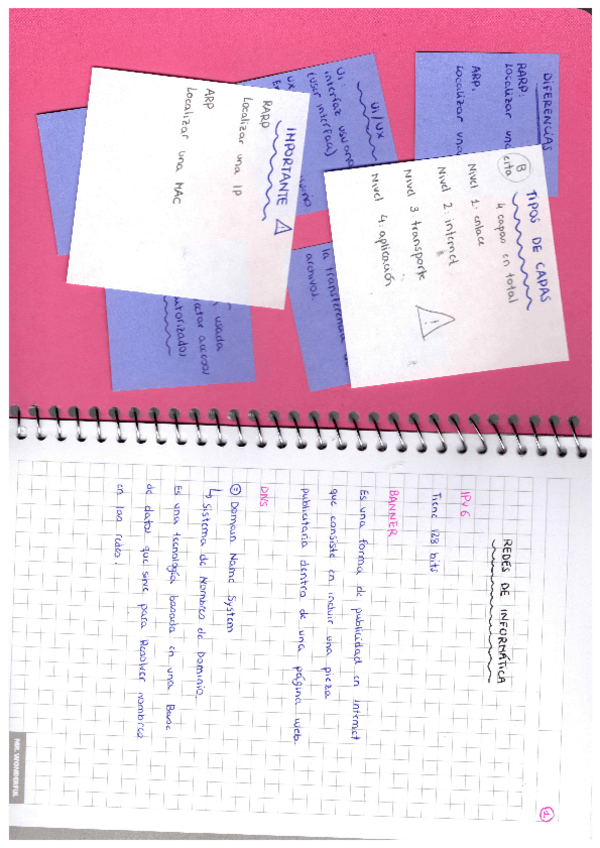 DIFERENCIAS
RARP:
Localizar una
ARP.
Localizar una
UI/UX
UI
interfaz usuario
(user interface)
UX
TIPOS DE CAPAS
4 capas en total
B
cita
Nivel 1: enlace
Nivel 2: internet
Nivel 3 transporte
Nivel 4: aplicación
!
IMPORTANTE
RARP
Localizar una IP
ARP
Localizar una MAC
la transferencia
archivos.
usada
accesos
REDES DE INFORMÁTICA
IPV6
Tiene 128 bits
BANNER
Es una forma de publicidad en Internet
que consiste en incluir una pieza
publicitaria dentro de una página web.
DNS
Domain Name System
↳ Sistema de Nombres de Dominio.
Es una tecnología basada en una Base
de datos que sirve para Resolver nombres
en las redes.
MR. WONDERFUL